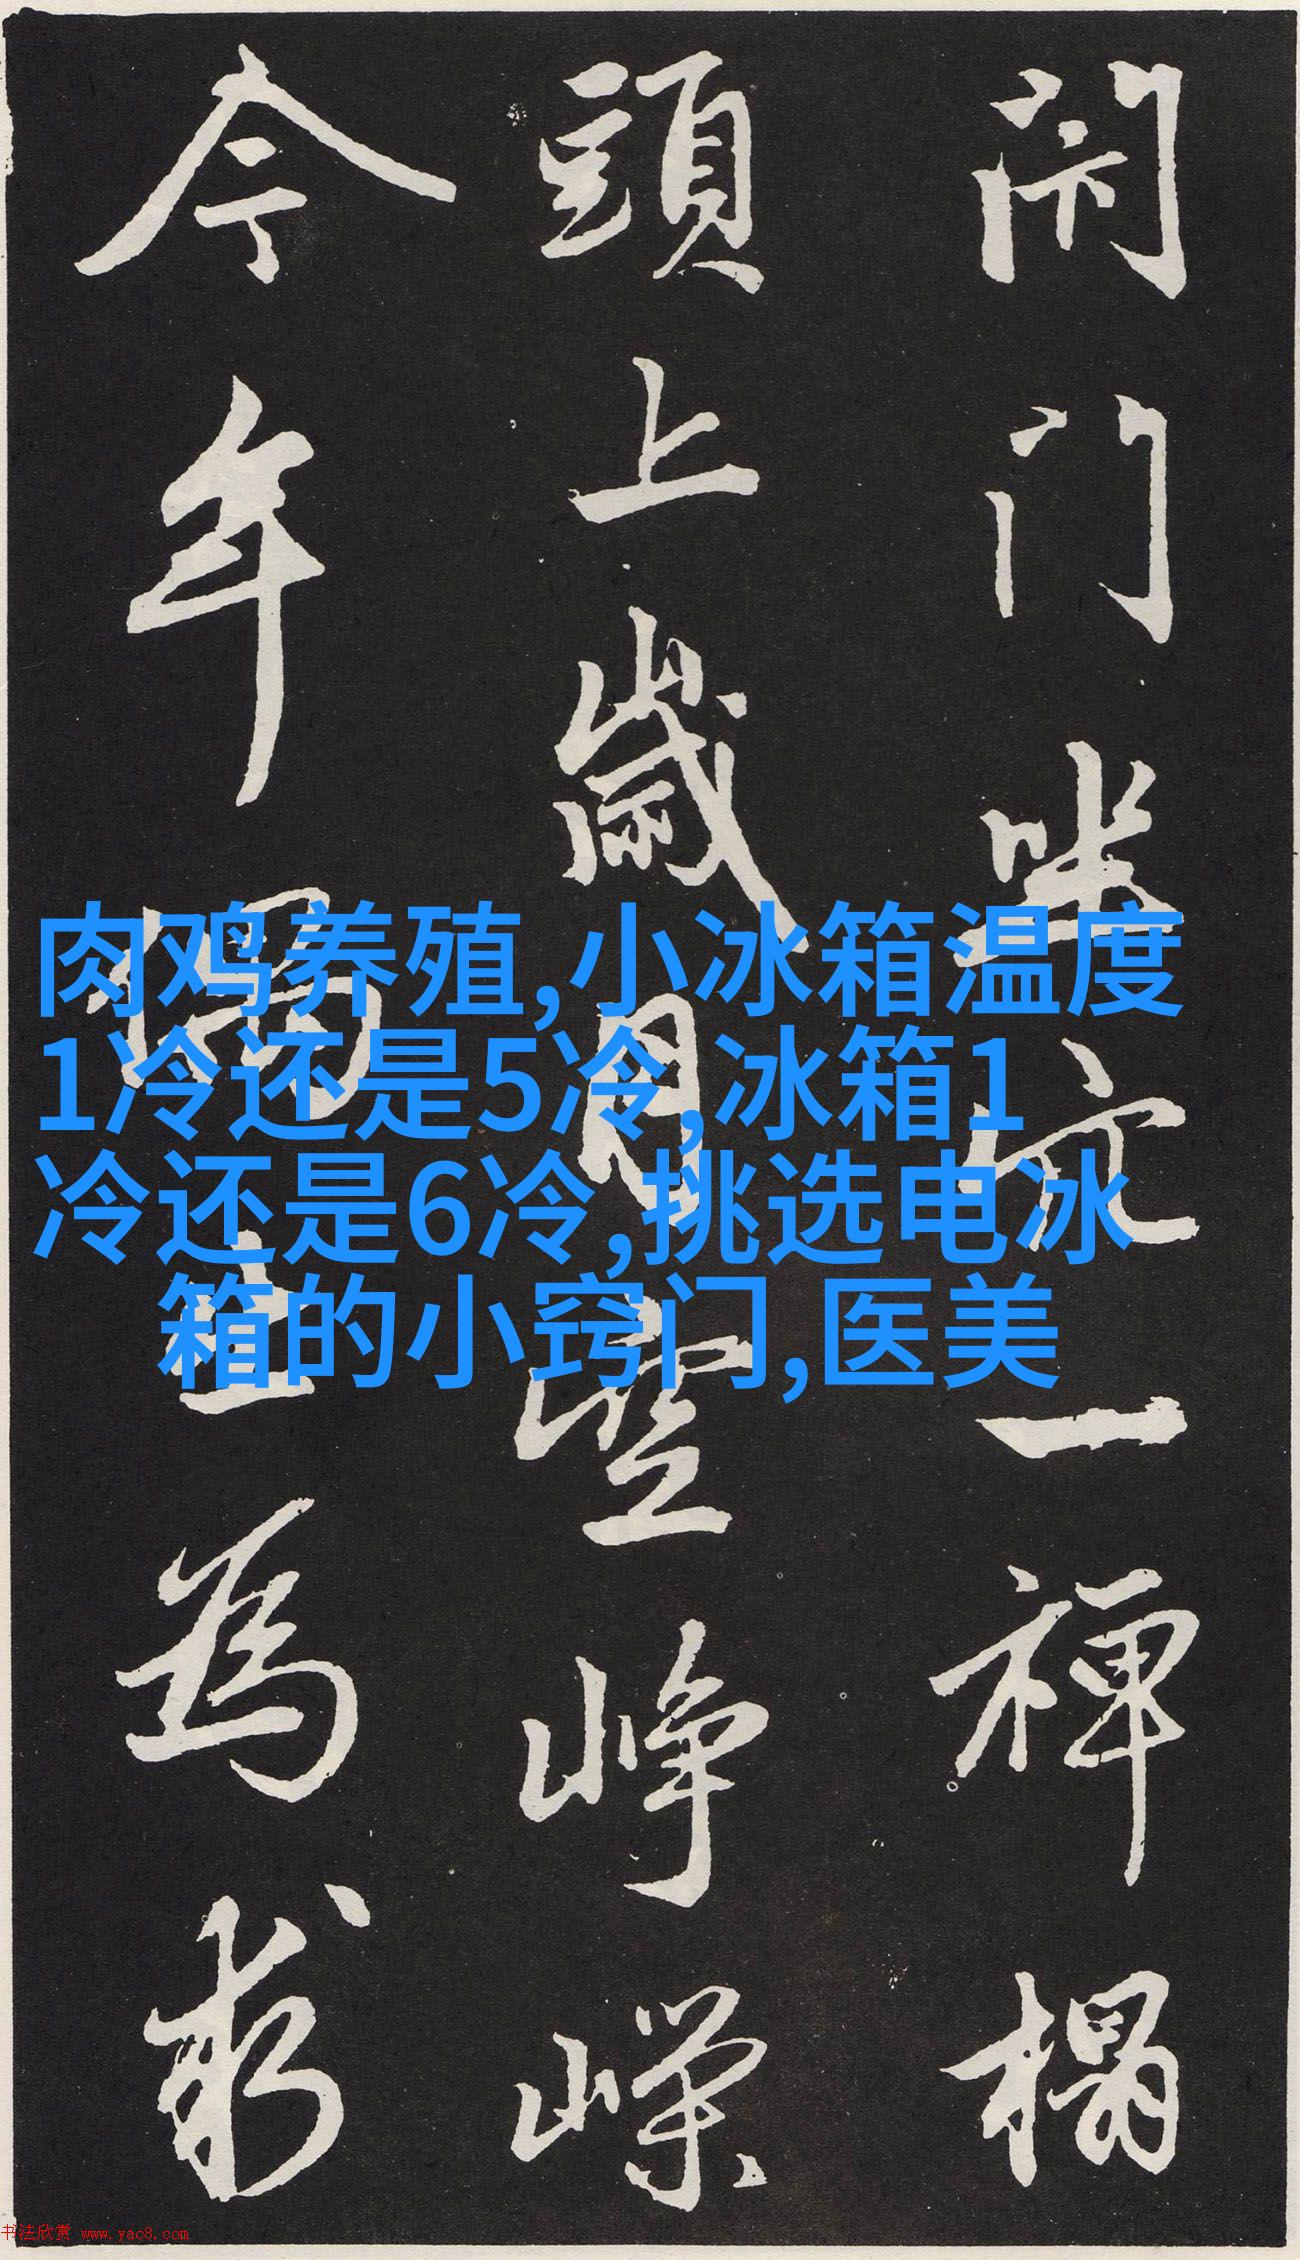 閇门坐穴一禅榻
頭上歲月空崢嶸
今年偶出為求
肉鸡养殖,小冰箱温度
1冷还是5冷,冰箱1
冷还是6冷,挑选电冰
箱的小窍门,医美
书法欣赏 www.yac8.com